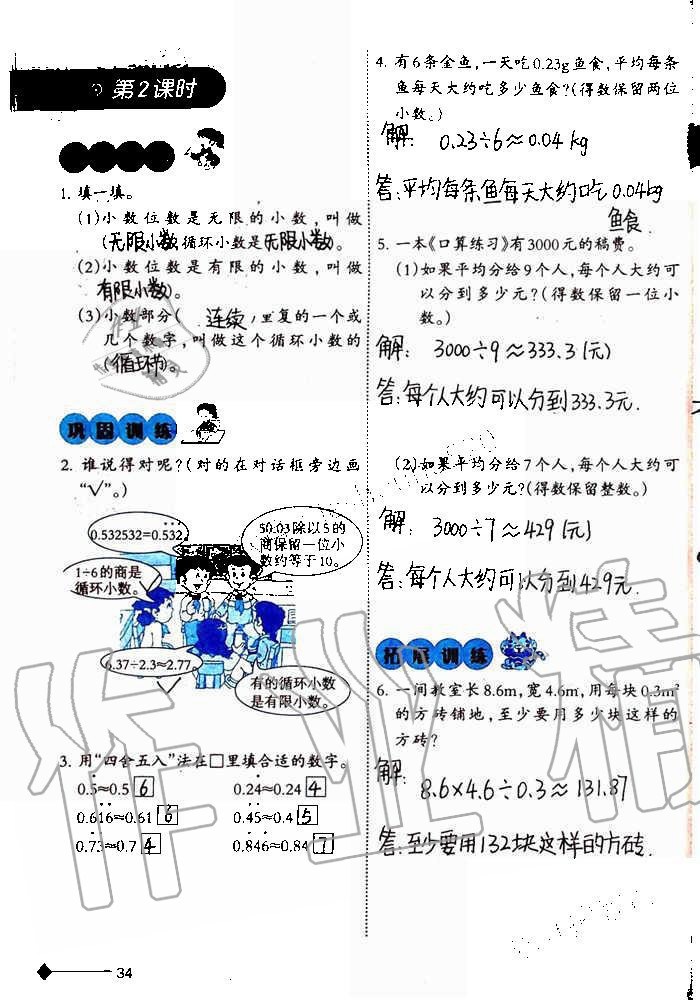 第2课时
1. 填一填。
(1)小数位数是无限的小数,叫做
(无限小数,循环小数是无限小数)。
(2)小数位数是有限的小数,叫做
(有限小数)。
(3)小数部分( 连续 )重复的一个或
几个数字,叫做这个循环小数的
(循环节)。
巩固训练
2. 谁说得对呢?(对的在对话框旁边画
“√”。)
0.532532=0.5̇32̇
50.03除以5的
商保留一位小
数约等于10。
1÷6的商是
循环小数。
6.37÷2.3≈2.77
有的循环小数
是有限小数。
3. 用“四舍五入”法在□里填合适的数字。
0.5̇≈0.5 6 0.2̇4̇≈0.24 4
0.6̇16̇≈0.61 6 0.4̇5̇≈0.4 5
0.7̇3̇≈0.7 4 0.8̇46̇≈0.84 7
34
4. 有6条金鱼,一天吃0.23g鱼食,平均每条
鱼每天大约吃多少鱼食?(得数保留两位
小数。)
解: 0.23÷6≈0.04 kg
答:平均每条鱼每天大约吃 0.04kg
鱼食.
5. 一本《口算练习》有3000元的稿费。
(1)如果平均分给9个人,每个人大约可
以分到多少元?(得数保留一位小
数。)
解: 3000÷9≈333.3(元)
答:每个人大约可以分到333.3元.
(2)如果平均分给7个人,每个人大约可
以分到多少元?(得数保留整数。)
解: 3000÷7≈429(元)
答:每个人大约可以分到429元.
拓展训练
6. 一间教室长8.6m,宽4.6m,用每块0.3m²
的方砖铺地,至少要用多少块这样的
方砖?
解:
8.6×4.6÷0.3≈131.87
答:至少要用132块这样的方砖.
作业精